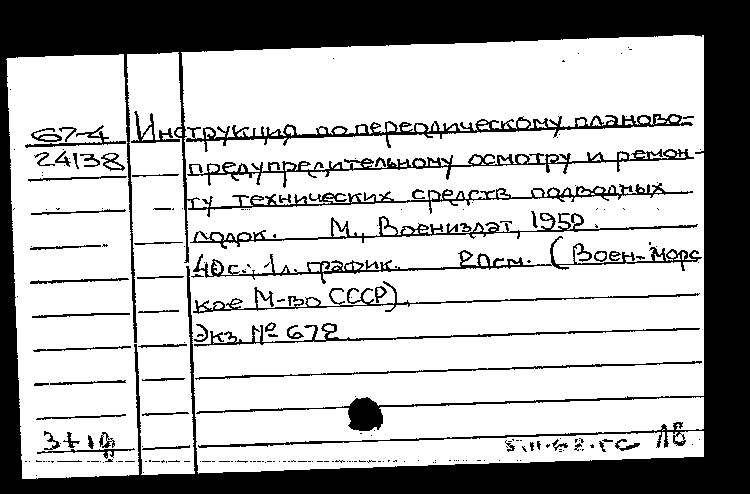 67-4 Инструкция по переодическому планово-
24138 предупредительному осмотру и ремон-
ту технических средств подводных
лодок. М., Воениздат, 1950.
40с.; 1л. график. 20см. (Воен-морс
кое М-во СССР).
Экз. № 672
3+1